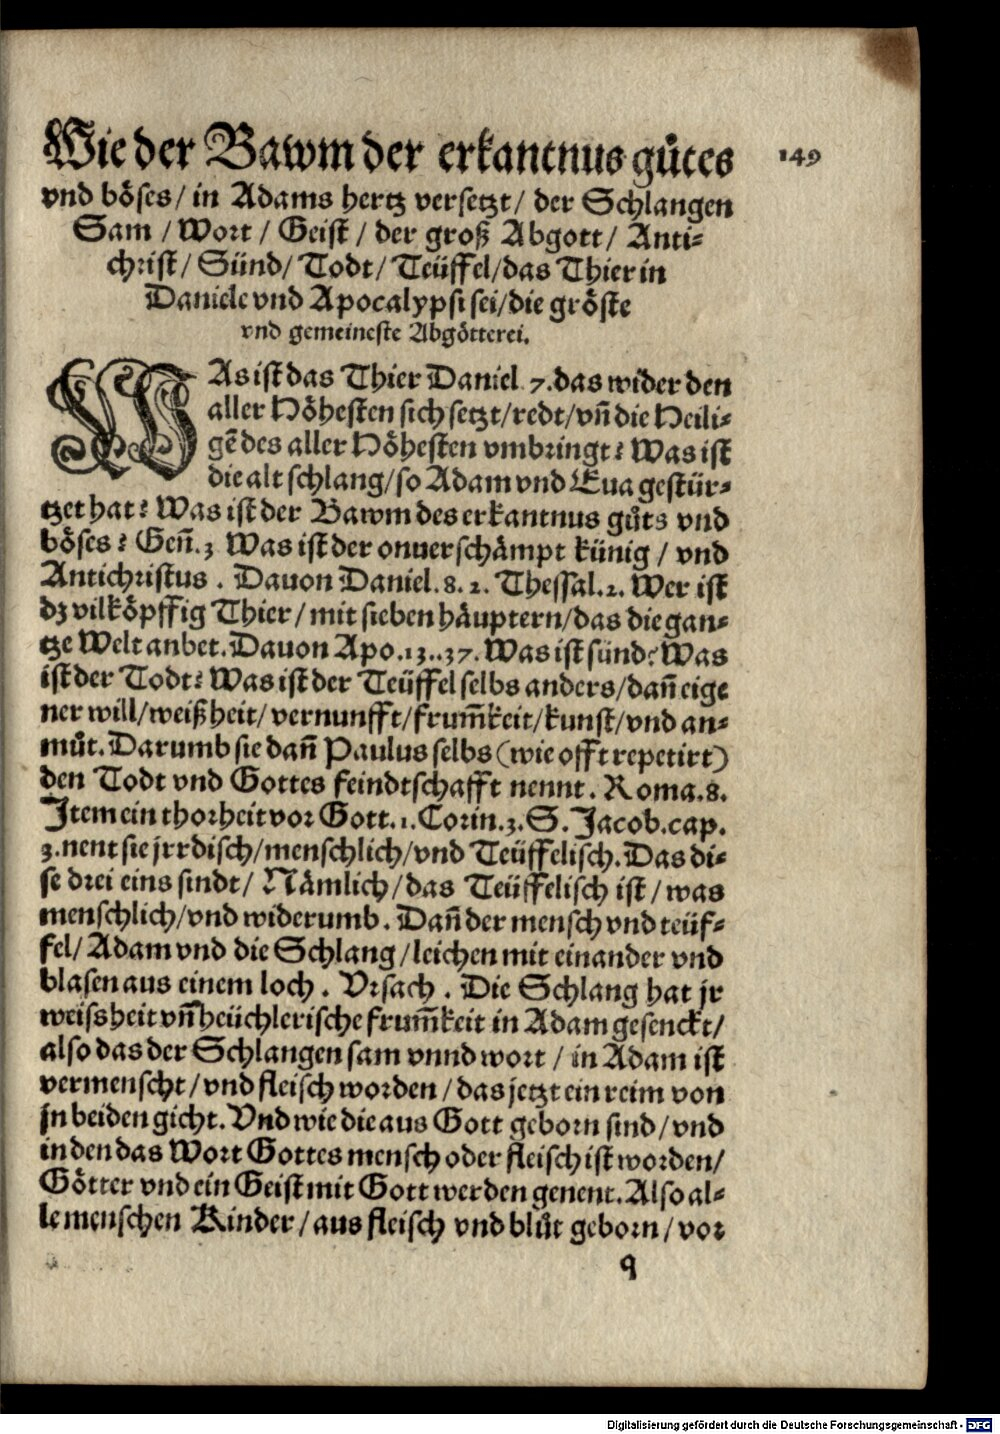 Wie der Bawm der erkantnus gůtes
149
vnd böses/ in Adams hertz versetzt/ der Schlangen
Sam / Wort / Geist / der groß Abgott/ Anti⸗
christ/ Sünd/ Todt/ Teüffel/das Thier in
Daniele vnd Apocalypsi sei/die gröste
vnd gemeineste Abgötterei.
WAs ist das Thier Daniel 7. das wider den
aller Höhesten sich setzt/redt/vñ die Heili⸗
gē des aller Höhesten vmbringt? Was ist
die alt schlang/so Adam vnd Eua gestür⸗
tzet hat? Was ist der Bawm des erkantnus gůts vnd
böses? Geñ.3 Was ist der onuerschämpt künig / vnd
Antichristus . Dauon Daniel. 8. 2. Thessal.2. Wer ist
dz vilköpffig Thier/ mit sieben häuptern/das die gan⸗
tze Welt anbet. Dauon Apo.13..37. Was ist sünd? Was
ist der Todt? Was ist der Teüffel selbs anders/dañ eige
ner will/weißheit/ vernunfft/frum̃keit/kunst/vnd an⸗
můt. Darumb sie dañ Paulus selbs (wie offt repetirt)
den Todt vnd Gottes feindtschafft nennt. Roma.8.
Item ein thorheit vor Gott. 1. Corin. 3. S. Jacob. cap.
3. nent sie jrrdisch/menschlich/vnd Teüffelisch. Das di⸗
se drei eins sindt/ Nämlich/das Teüffelisch ist/was
menschlich/vnd widerumb. Dañ der mensch vnd teüf⸗
fel/ Adam vnd die Schlang/leichen mit einander vnd
blasen aus einem loch. Vrsach. Die Schlang hat jr
weissheit vñ heüchlerische frum̃keit in Adam gesenckt/
also das der Schlangen sam vnnd wort / in Adam ist
vermenscht/vnd fleisch worden/das jetzt ein reim von
jn beiden gicht. Vnd wie die aus Gott geborn sind/vnd
in den das Wort Gottes mensch oder fleisch ist worden/
Götter vnd ein Geist mit Gott werden genent. Also al⸗
le menschen Kinder/aus fleisch vnd blůt geborn/vor
q
Digitalisierung gefördert durch die Deutsche Forschungsgemeinschaft - DFG